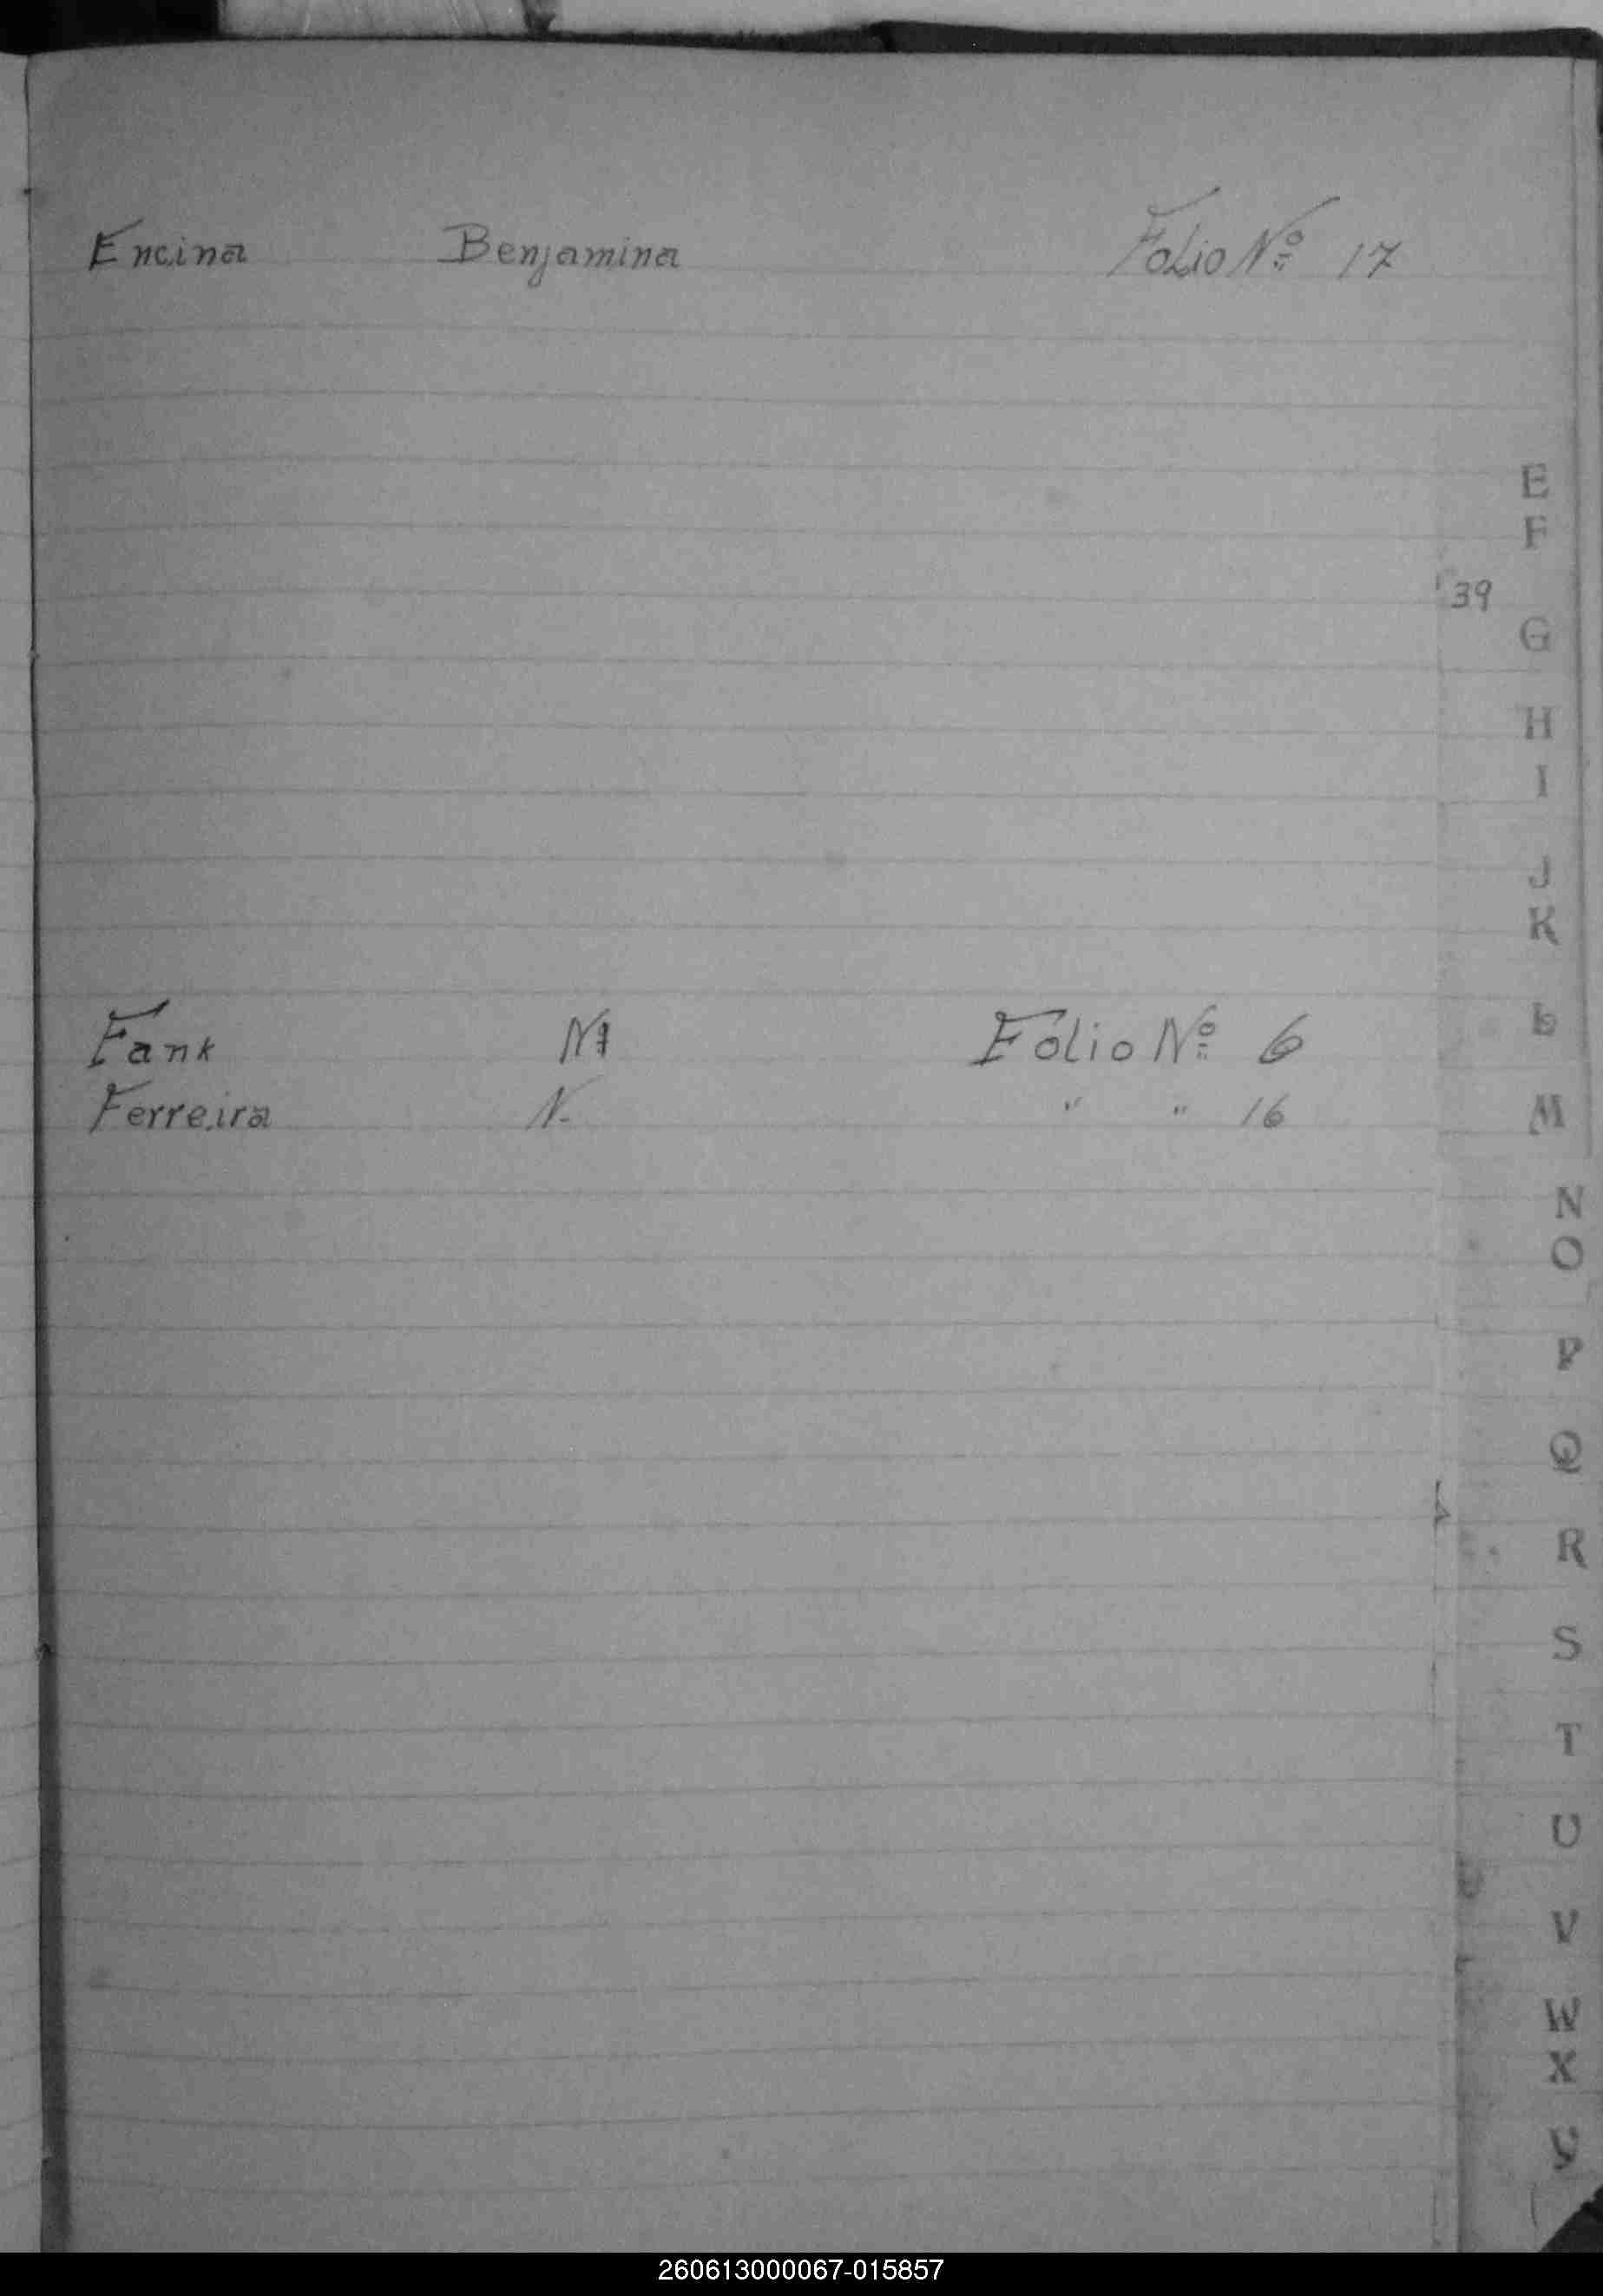 Encina Benjamina Folio Nº 17
E
F
39
G
H
I
J
K
L
Fank Folio Nº 6
Ferreira N. " " 16
M
N
O
P
Q
R
S
T
U
V
W
X
Y
260613000067-015857